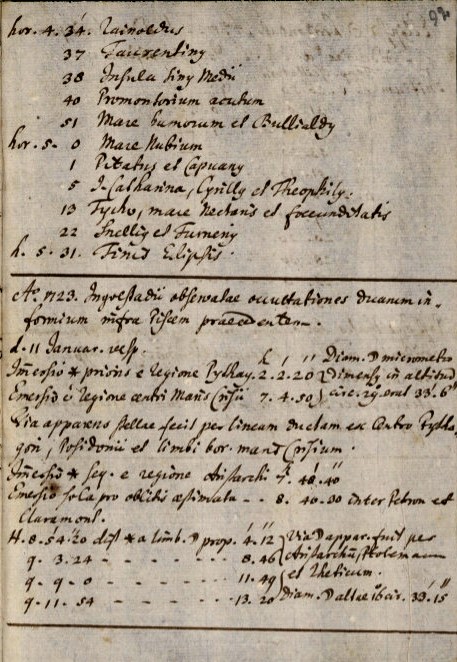 92
hor. 4. 34. Rainoldus
37 Taurentiny
38 Insula Siny Medii
40 Promontorium acutum
51 Mare humorum et Bullialdy
hor. 5. 0 Mare Nubium
1 Pitatus et Capuany
5 S. Catharina, Cyrilly et Theophily.
13 Tycho, mare Nectaris et foecunditatis
22 Snelliy et Furneriy
h. 5. 31. Finis Eclipsis
Aº. 1723. Ingolstadii observatae occultationes duarum in-
formium infra Piscem praecedentem.
d. 11 Januar. vesp.
Immersio * prioris e regione Pythag. 2. 2. 20 Diam. D micrometro
dimens. in altitud
Emersio e regione centri Maris Crisii 7. 4. 50 circ. 29. erat 33. 6"
Via apparens stellae fecit per lineam ductam ex Centro Pytha-
gori, Posidonii et limbi bor. maris Crisium.
Immersio * seq. e regione Aristarchi 7. 48. 40
Emersio sola pro oblibi aestimata - - 8. 40. 30 inter Petron et
Claramont.
H. 8. 54. 20 dist * a limb. D prop. 4. 12 Via D appar. fuit per
9. 3. 24 - - - - - - 8. 46 Aristarchu Ptolemaeum
9. 9. 0 - - - - - - 11. 49 et Rheticum.
9. 11. 54 - - - - - 13. 20 diam. D altae 33. 15"